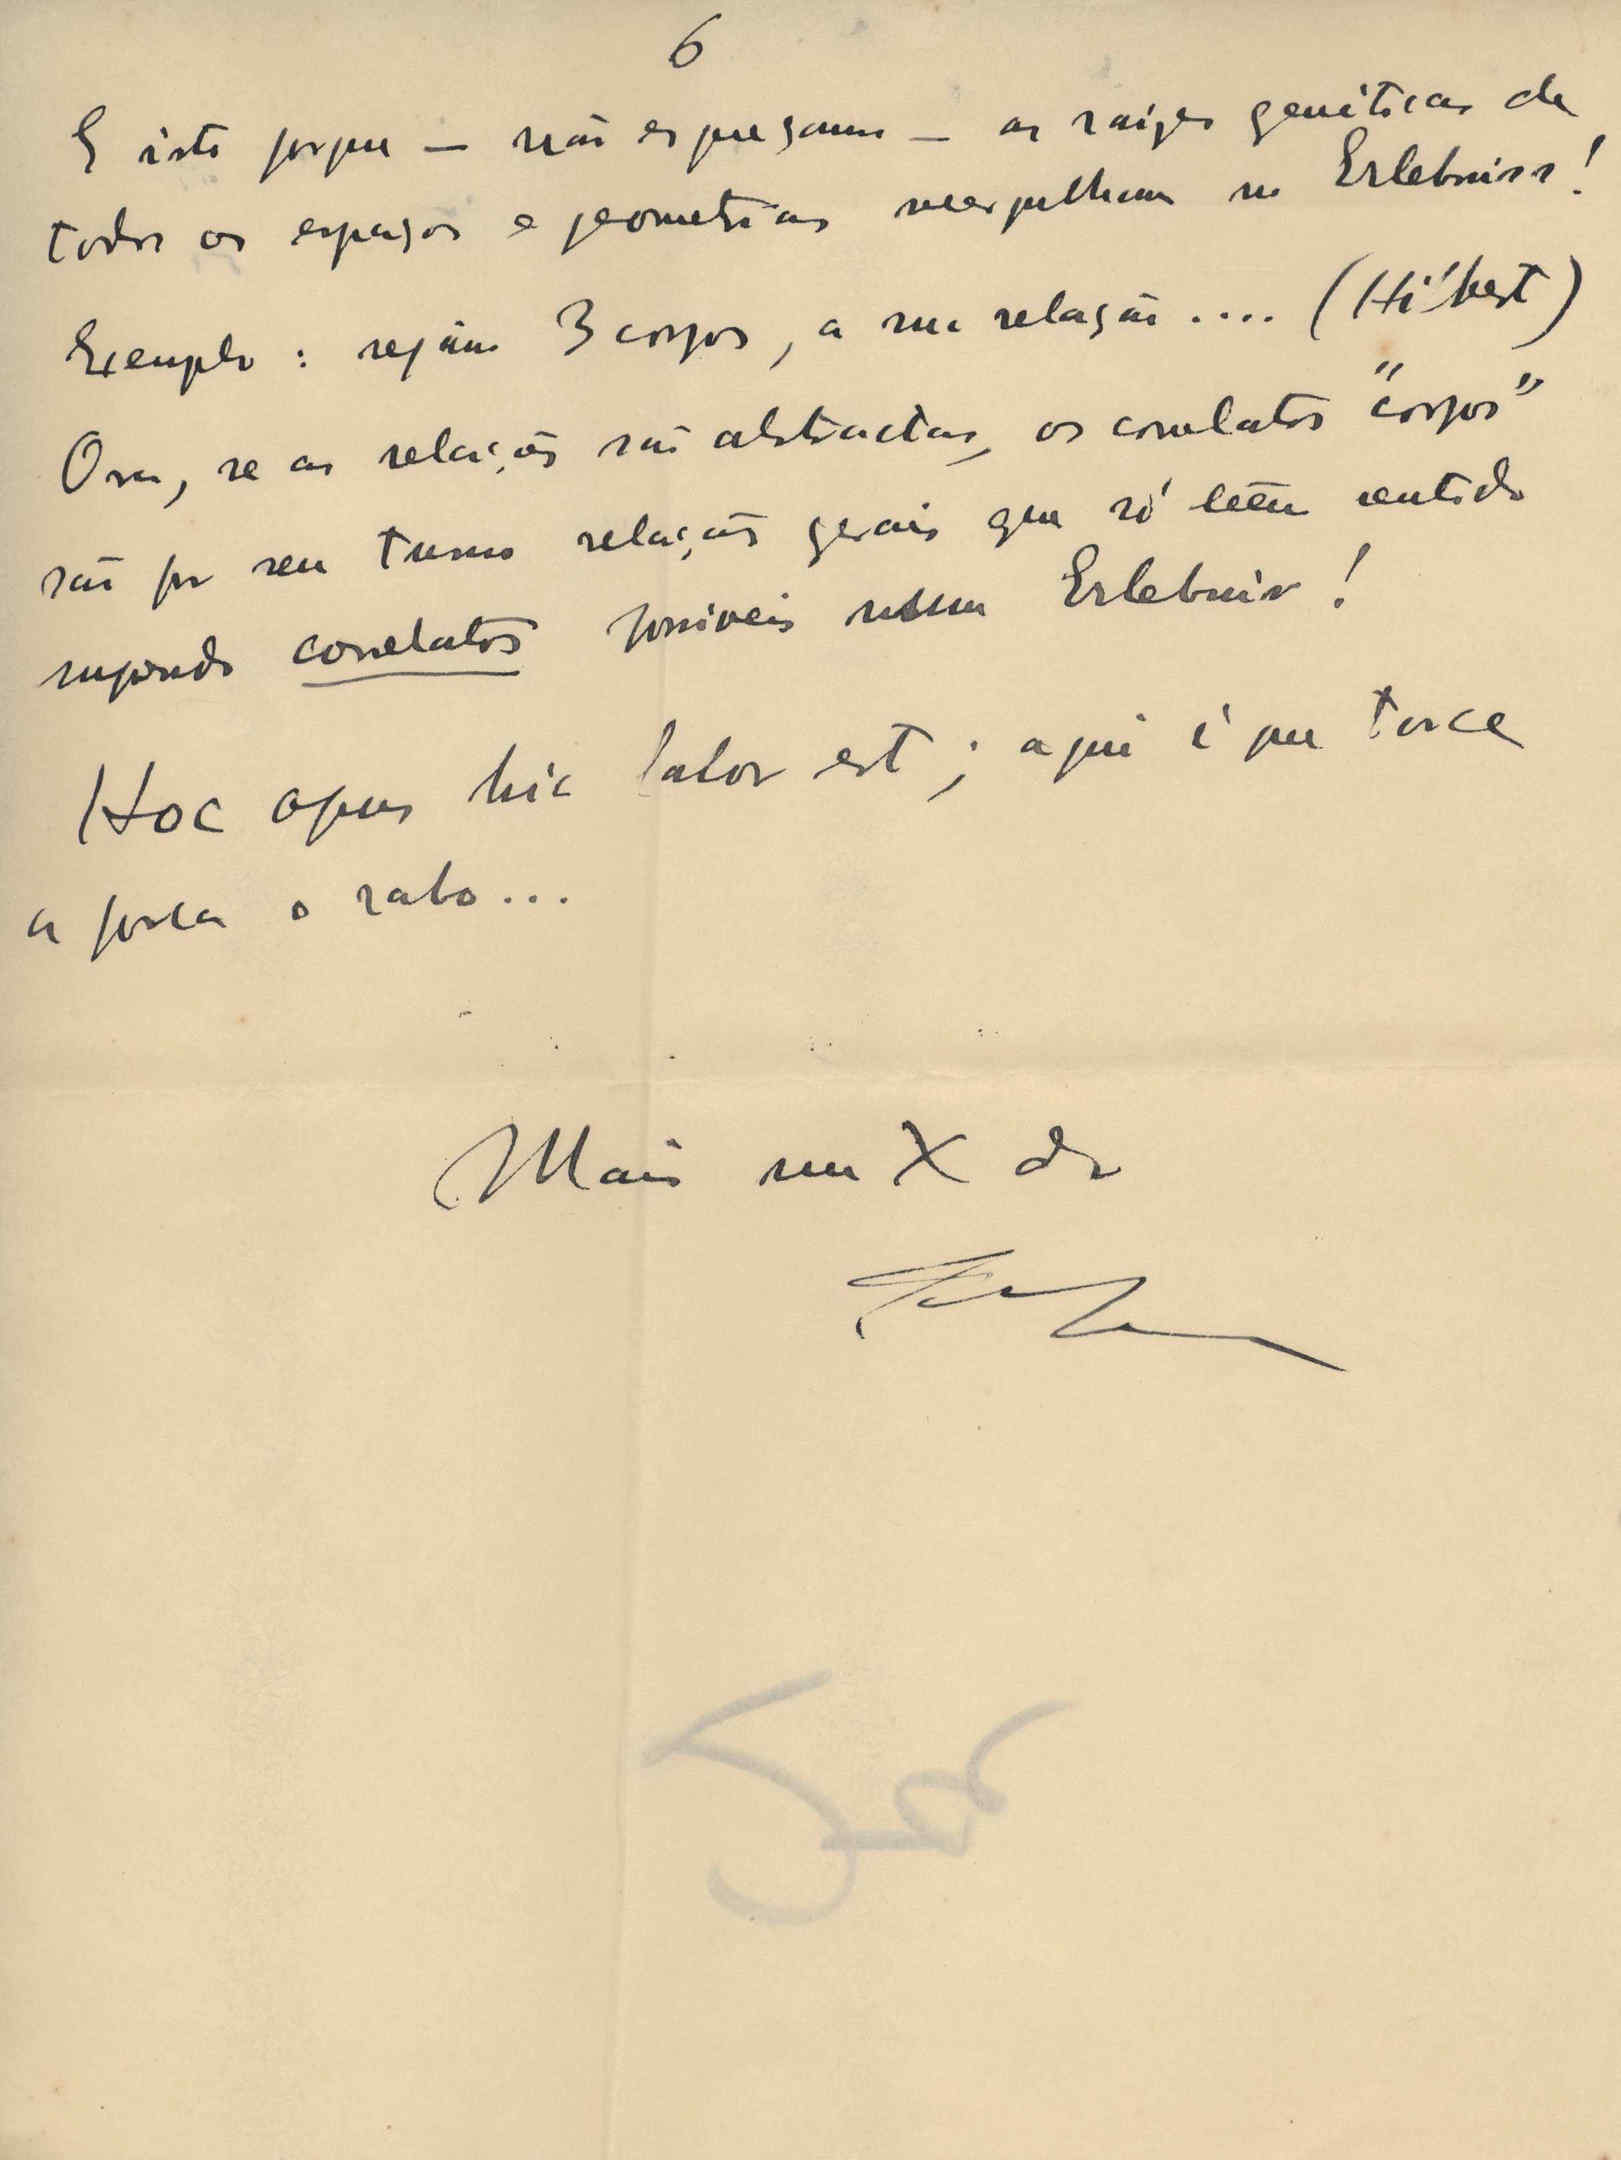 6
E isto porque — não esqueçamos — as raizes genéticas de
todos os espaços e geometrias mergulham no Erlebniss!
Exemplo: sejam 3 corpos, a sua relação .... (Hilbert)
Ora, se as relações são abstractas, os correlatos "corpos"
são por seu turno relações gerais que só teem sentido
supondo correlatos possiveis num Erlebnis!
Hoc opus hic labor est; aqui é que torce
a porca o rabo...
Mais um X do